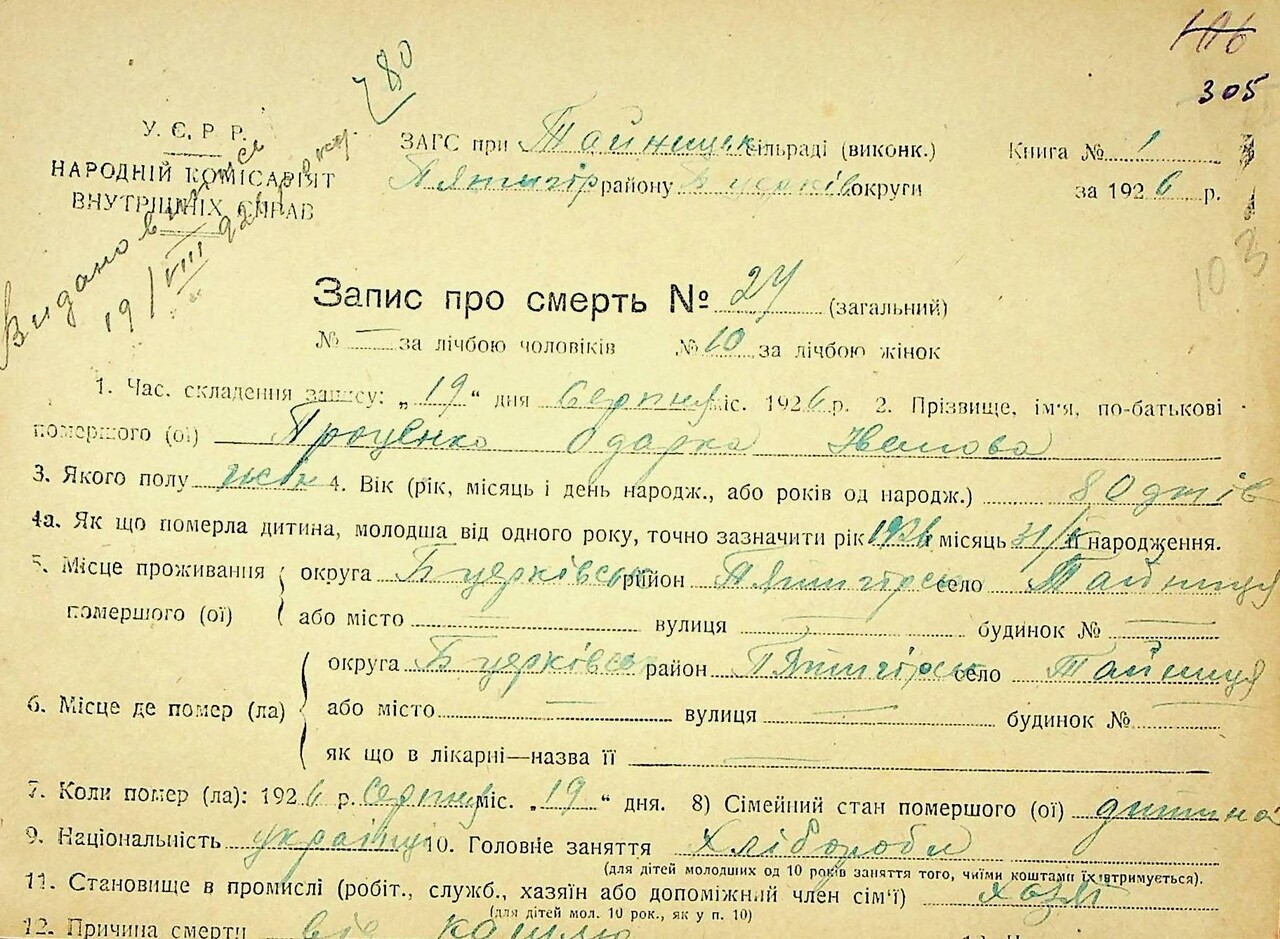 106
305
780
У. Є. Р. Р.
НАРОДНІЙ КОМІСАРІЯТ
ВНУТРІШНІХ СПРАВ
Видано виписъ
19/VIII 926 року
ЗАГС при Тайницьк сільраді (виконк.)
Пятигір району Б церків округи
Книга № 1
за 1926 р.
103
Запис про смерть № 24 (загальний)
№ — за лічбою чоловіків № 10 за лічбою жінок
1. Час. складення запису: „19“ дня Серпня міс. 1926 р. 2. Прізвище, ім'я, по-батькові
помершого (ої) Проценко Одарка Иванова
3. Якого полу жін 4. Вік (рік, місяць і день народж., або років од народж.) 80 днів
4а. Як що померла дитина, молодша від одного року, точно зазначити рік 1926 місяць 31/V її народження.
5. Місце проживання помершого (ої) округа Б церківськ район Пятигірськ село Тайниця
або місто — вулиця — будинок № —
6. Місце де помер (ла) округа Б церківсь район Пятигірськ село Тайниця
або місто — вулиця — будинок № —
як що в лікарні—назва її —
7. Коли помер (ла): 1926 р. серпня міс. „19“ дня. 8) Сімейний стан помершого (ої) дитина
9. Національність україн 10. Головне заняття Хлібороби
(для дітей молодших од 10 років заняття того, чиїми коштами їх втримується).
11. Становище в промислі (робіт., служб., хазяїн або допоміжний член сім'ї) хозя
(для дітей мол. 10 рок., як у п. 10)
12. Причина смерти від кашлю